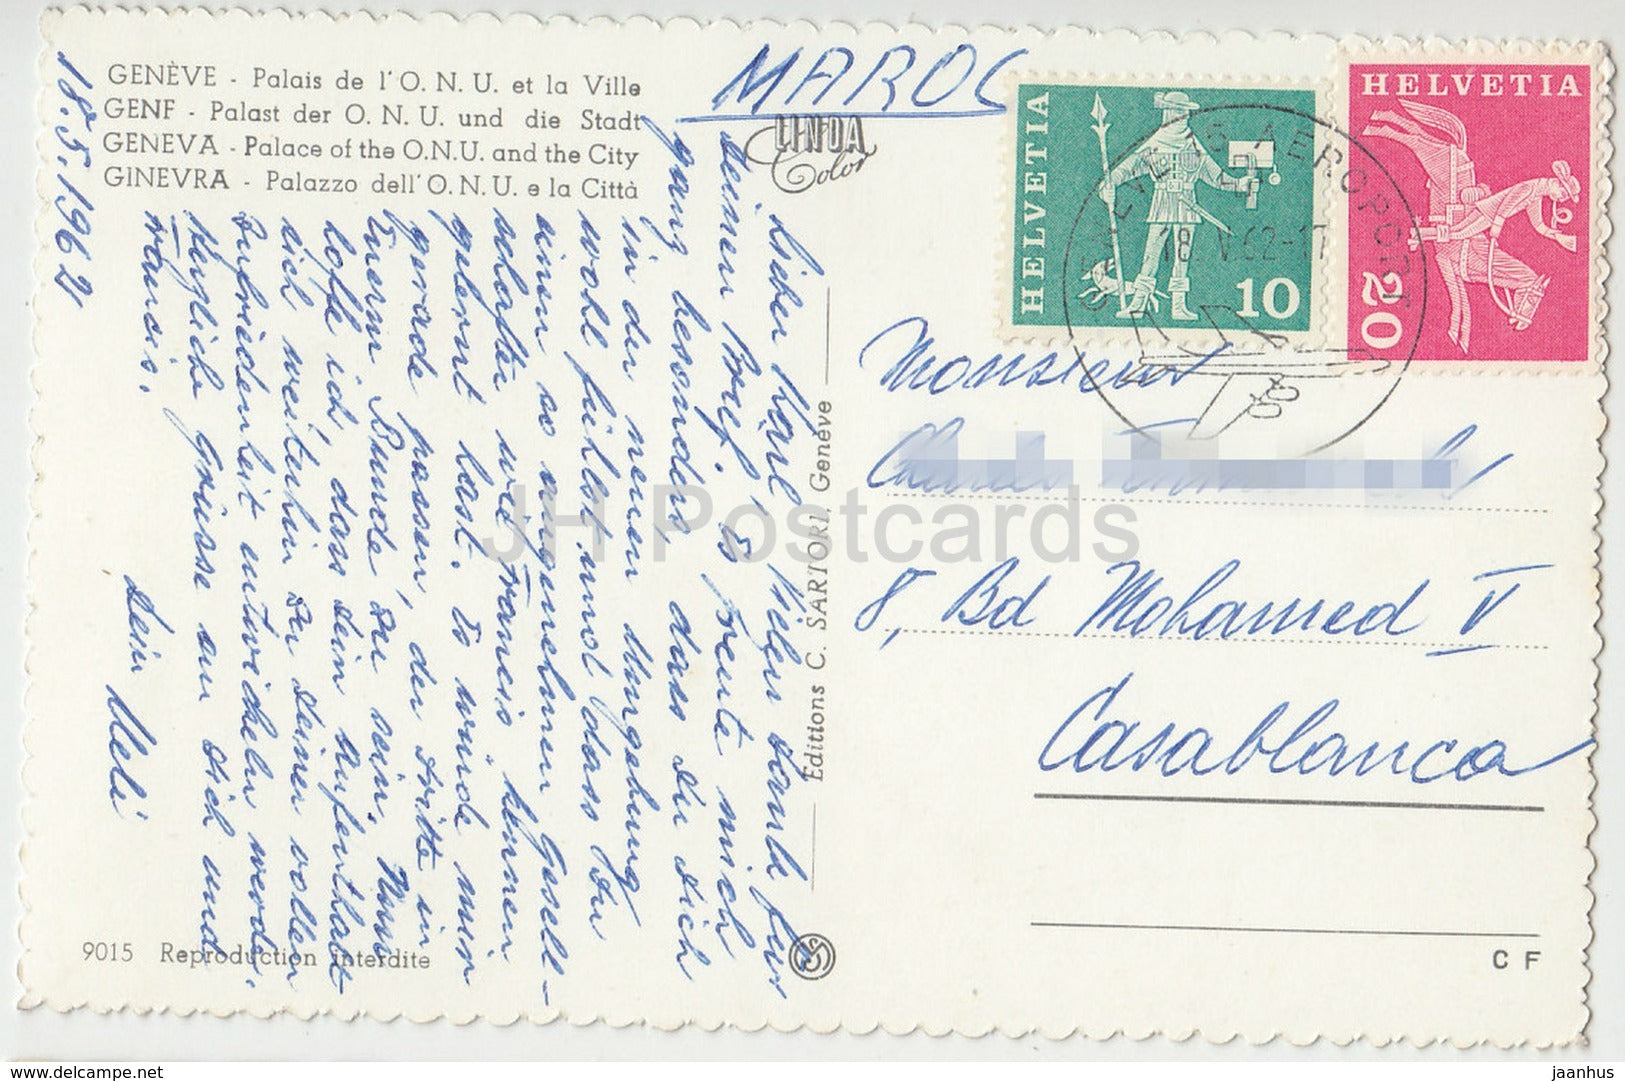 GENÈVE - Palais de l'O. N. U. et la Ville
GENF - Palast der O. N. U. und die Stadt
GENEVA - Palace of the O.N.U. and the City
GINEVRA - Palazzo dell'O. N. U. e la Città
LINDA
Color
MAROC
HELVETIA
10
HELVETIA
20
AEROPORT
18. V. 62-17
18.5.1962
Lieber Karl, Vielen Dank für
deinen Brief. Es freute mich
ganz besonders, dass du dich
in der neuen Umgebung
wohl fühlst und dass du
einen so angenehmen Gesell-
schafter wie Francis kennen
gelernt hast. Es würde mir
gerade passen, der dritte in
Euerm Bunde zu sein. Nun
hoffe ich, dass dein Aufenthalt
dich weiterhin zu deiner vollen
Zufriedenheit entwickeln werde.
Herzliche Grüsse an dich und
Francis.
Dein Ueli
Editions C. SARTORI, Genève
Monsieur
8, Bd Mohamed V
Casablanca
9015 Reproduction interdite
C F
JH Postcards
For sale on www.delcampe.net
jaanhus